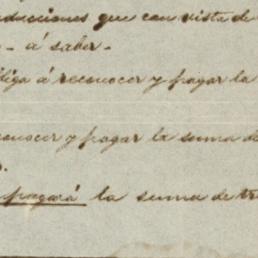 aducciones que con vista de
- á saber.
bliga á reconocer y pagar la
conocer y pagar la suma de
pagará la suma de tre